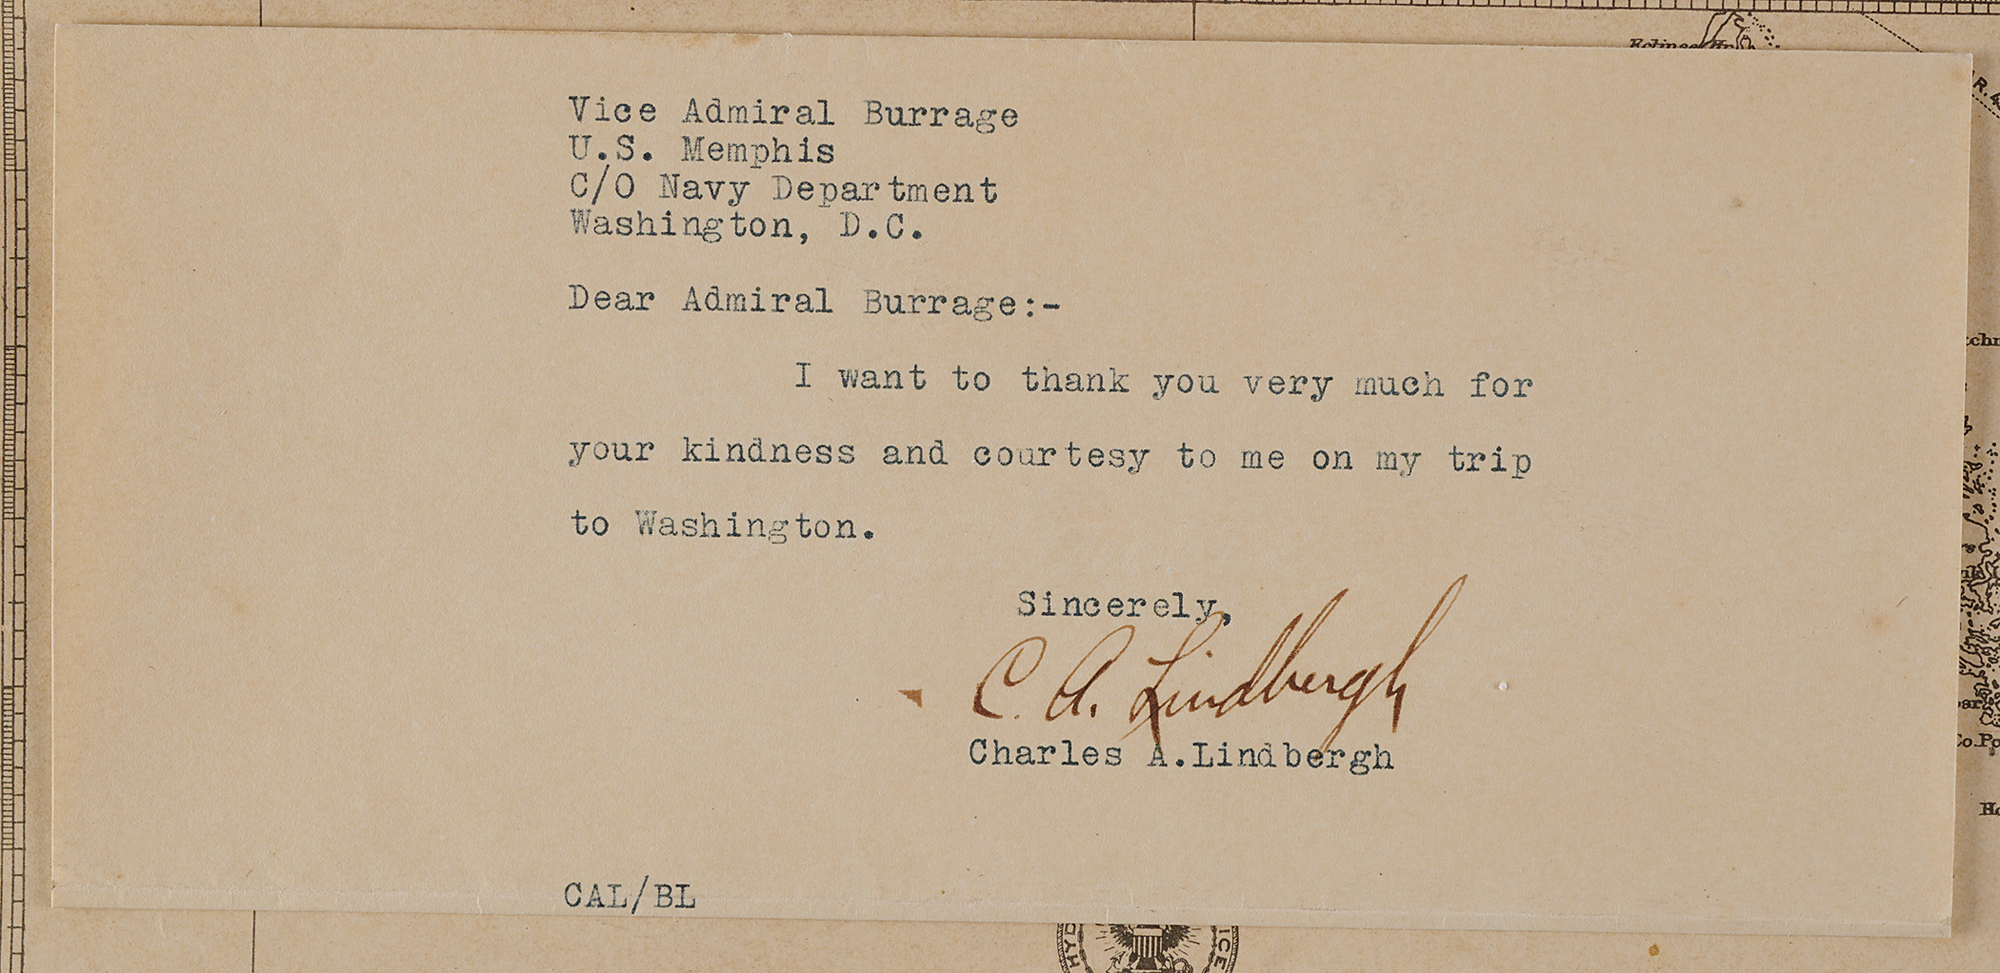 Vice Admiral Burrage
U.S. Memphis
C/O Navy Department
Washington, D.C.
Dear Admiral Burrage:-
I want to thank you very much for
your kindness and courtesy to me on my trip
to Washington.
Sincerely,
C. A. Lindbergh
Charles A.Lindbergh
CAL/BL